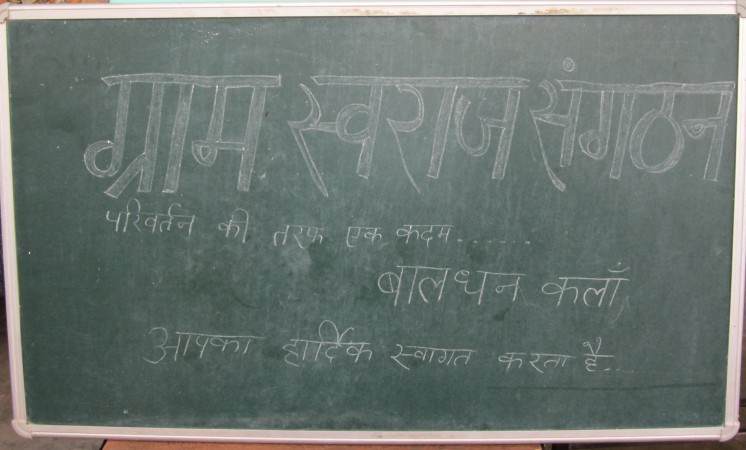 ग्राम स्वराज संगठन
परिवर्तन की तरफ एक कदम.......
बालधन कलाँ
आपका हार्दिक स्वागत करता है...